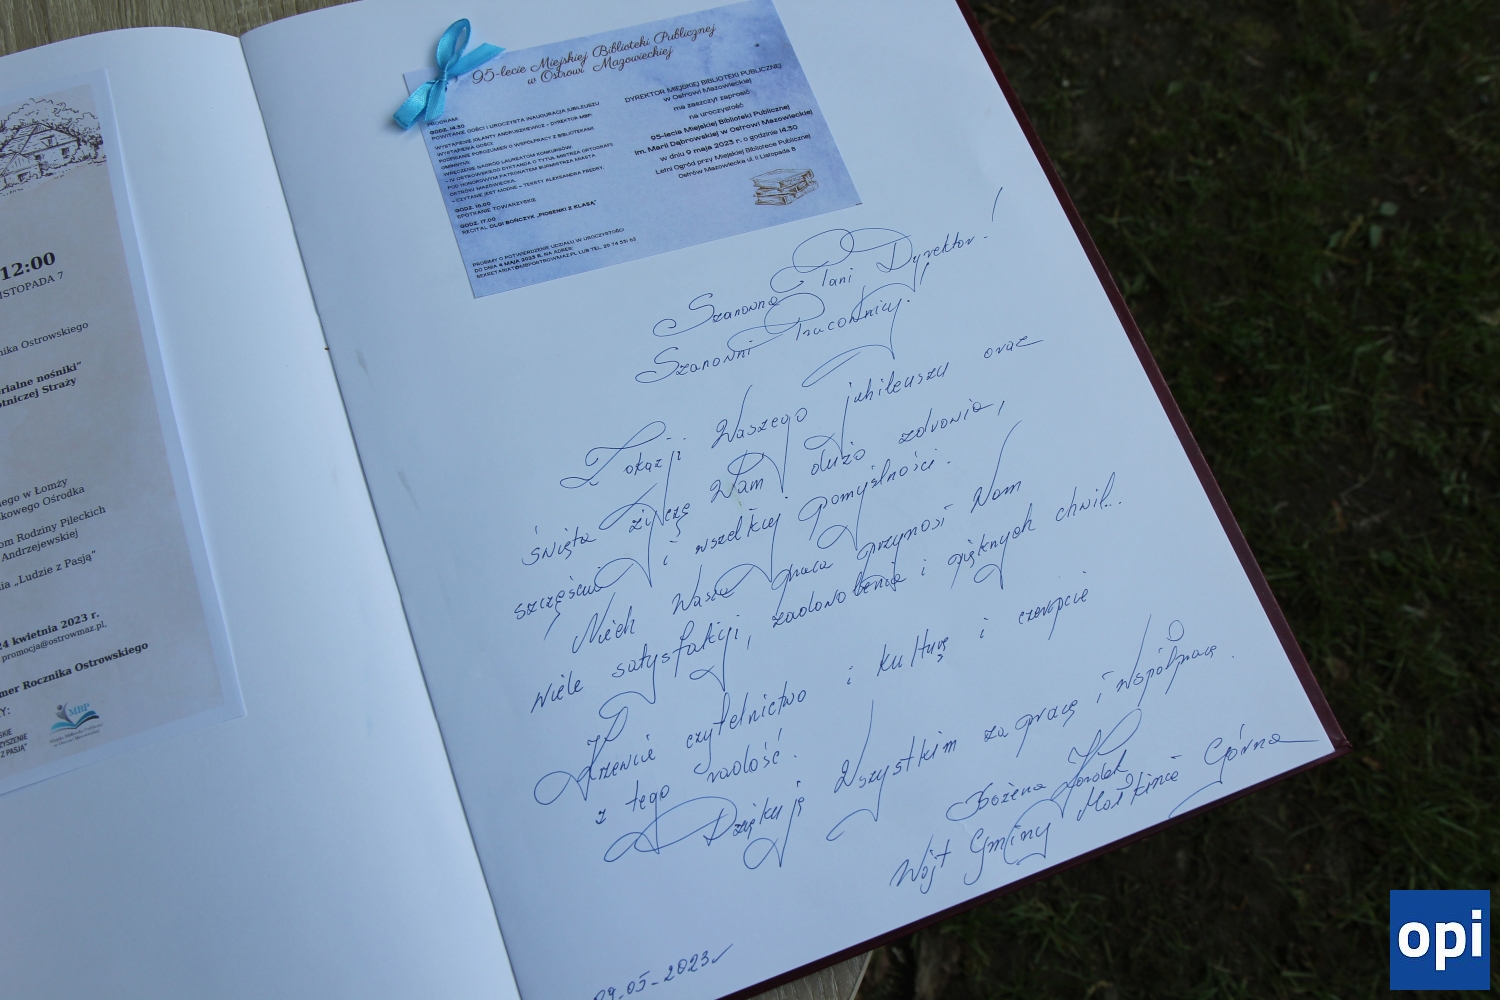 12:00
ISTOPADA 7
nika Ostrowskiego
erialne nośniki”
otniczej Straży
ego w Łomży
kowego Ośrodka
om Rodziny Pileckich
Andrzejewskiej
nia „Ludzie z Pasją”
24 kwietnia 2023 r.
promocja@ostrowmaz.pl,
mer Rocznika Ostrowskiego
Y:
MBP
95-lecie Miejskiej Biblioteki Publicznej
w Ostrowi Mazowieckiej
PROGRAM:
GODZ. 14.30
POWITANIE GOŚCI I UROCZYSTA INAUGURACJA JUBILEUSZU
WYSTĄPIENIE JOLANTY ANDRUSZKIEWICZ – DYREKTOR MBP.
WYSTĄPIENIA GOŚCI.
PODPISANIE POROZUMIEŃ O WSPÓŁPRACY Z BIBLIOTEKAMI
GMINNYMI.
WRĘCZENIE NAGRÓD LAUREATOM KONKURSÓW:
– IV OSTROWSKIEGO DYKTANDA O TYTUŁ MISTRZA ORTOGRAFII
POD HONOROWYM PATRONATEM BURMISTRZA MIASTA
OSTRÓW MAZOWIECKA,
– CZYTANIE JEST MODNE – TEKSTY ALEKSANDRA FREDRY.
GODZ. 16.00
SPOTKANIE TOWARZYSKIE
GODZ. 17.00
RECITAL OLGI BOŃCZYK „PIOSENKI Z KLASĄ”
PROSIMY O POTWIERDZENIE UDZIAŁU W UROCZYSTOŚCI
DO DNIA 4 MAJA 2023 R. NA ADRES:
SEKRETARIAT@MBPOSTROWMAZ.PL LUB TEL. 29 74 531 62
DYREKTOR MIEJSKIEJ BIBLIOTEKI PUBLICZNEJ
w Ostrowi Mazowieckiej
ma zaszczyt zaprosić
na uroczystość
95-lecia Miejskiej Biblioteki Publicznej
im. Marii Dąbrowskiej w Ostrowi Mazowieckiej
w dniu 9 maja 2023 r. o godzinie 14.30
Letni Ogród przy Miejskiej Bibliotece Publicznej
Ostrów Mazowiecka ul. 11 Listopada 5
Szanowna Pani Dyrektor!
Szanowni Pracownicy!
Z okazji Waszego jubileuszu oraz
święta życzę Wam dużo zdrowia,
szczęścia i wszelkiej pomyślności.
Niech Wasza praca przynosi Wam
wiele satysfakcji, zadowolenia i pięknych chwil...
Krzewcie czytelnictwo i kulturę i czerpcie
z tego radość.
Dziękuję Wszystkim za pracę i współpracę.
Bożena Kordek
Wójt Gminy Małkinia Górna
09.05-2023r
opi